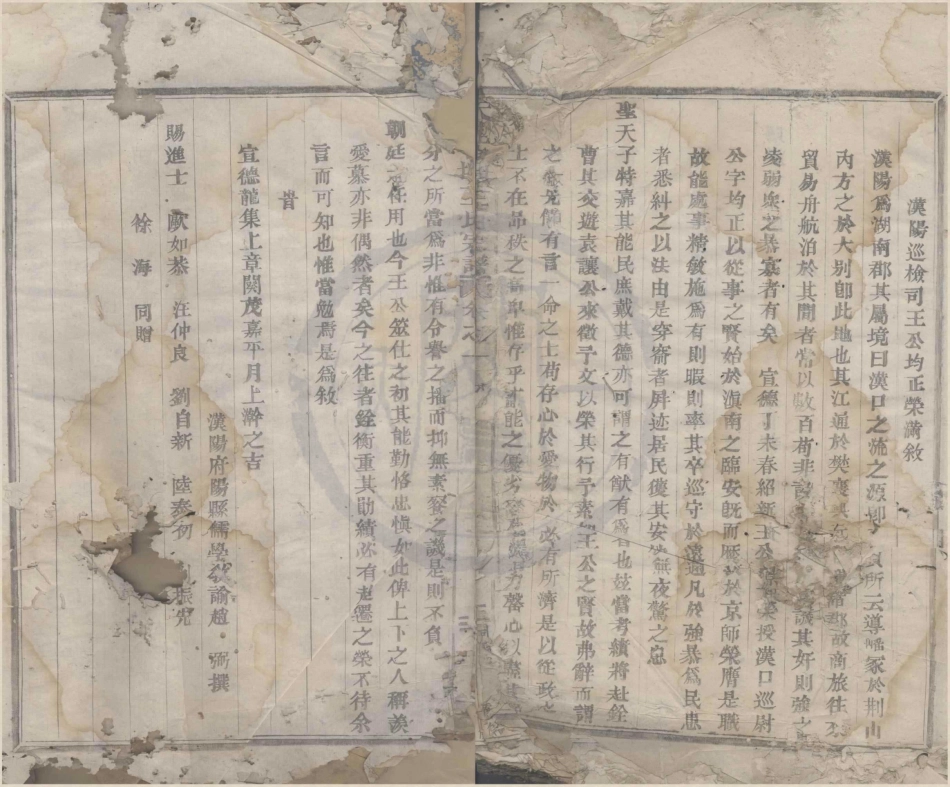 漢陽巡檢司王公均正榮滿敘
漢陽爲湖南郡其屬境曰漢口之流之源即 貢所云導嶓冢於荆山
內方之於大別卽此地也其江通於樊襄 故商旅往
貿易舟航泊於其間者常以數百苟非 譏其奸則強之
凌弱衆之暴寡者有矣 宣德丁未春紹新王公 授漢口巡尉
公字均正以從事之賢始於滇南之臨安旣而厯於京師榮膺是職
故能處事精敏施爲有則暇則率其卒巡守於遠邇凡終強暴爲民患
者悉糾之以法由是穿窬者屏迹居民獲其安 無夜驚之忘
聖天子特嘉其能民庶戴其德亦可謂之有猷有爲者也兹當考績將赴銓
曹其交遊袁讓公來徵予文以榮其行予素知王公之賢故弗辭而謂
之 先儒有言一命之士苟存心於愛物於 必有所濟是以從政
士不在品秩之 卑惟存乎才能之優劣 力罄心以
分之所當爲非惟有令譽之播而抑無素餐之譏是則不負
朝廷之任用也今王公筮仕之初其能勤恪忠愼如此俾上下之人稱羨
愛慕亦非偶然者矣今之往者銓衡重其勛績必有超 之榮不待余
言而可知也惟當勉焉是爲敘
旹
宣德龍集上章閹茂嘉平月上澣之吉
漢陽府陽縣儒學 諭趙 弼撰
賜進士 歐如恭 汪仲良 劉自新 陸泰初 振光
徐 海 同贈